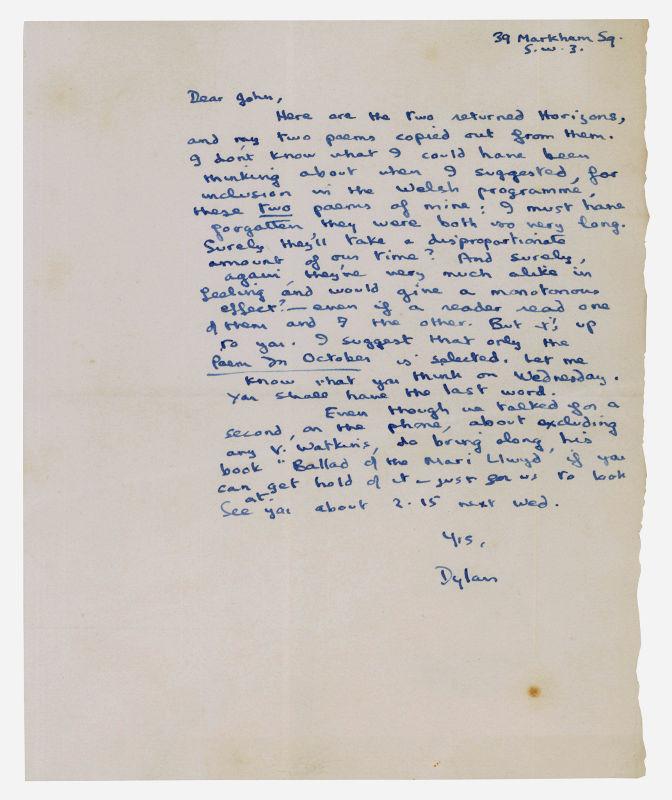 39 Markham Sq.
S.W.3.
Dear John,
Here are the two returned Horizons,
and my two poems copied out from them.
I don't know what I could have been
thinking about when I suggested, for
inclusion in the Welsh programme,
these two poems of mine: I must have
forgotten they were both so very long.
Surely they'll take a disproportionate
amount of our time? And surely,
again, they're very much alike in
feeling and would give a monotonous
effect? — even if a reader read one
of them and I the other. But it's up
to you. I suggest that only the
Poem In October is selected. Let me
know what you think on Wednesday.
You shall have the last word.
Even though we talked for a
second, on the phone, about excluding
any V. Watkins, do bring along his
book "Ballad of the Mari Llwyd, if you
can get hold of it — just for us to look
at.
See you about 2.15 next Wed.
Yrs,
Dylan